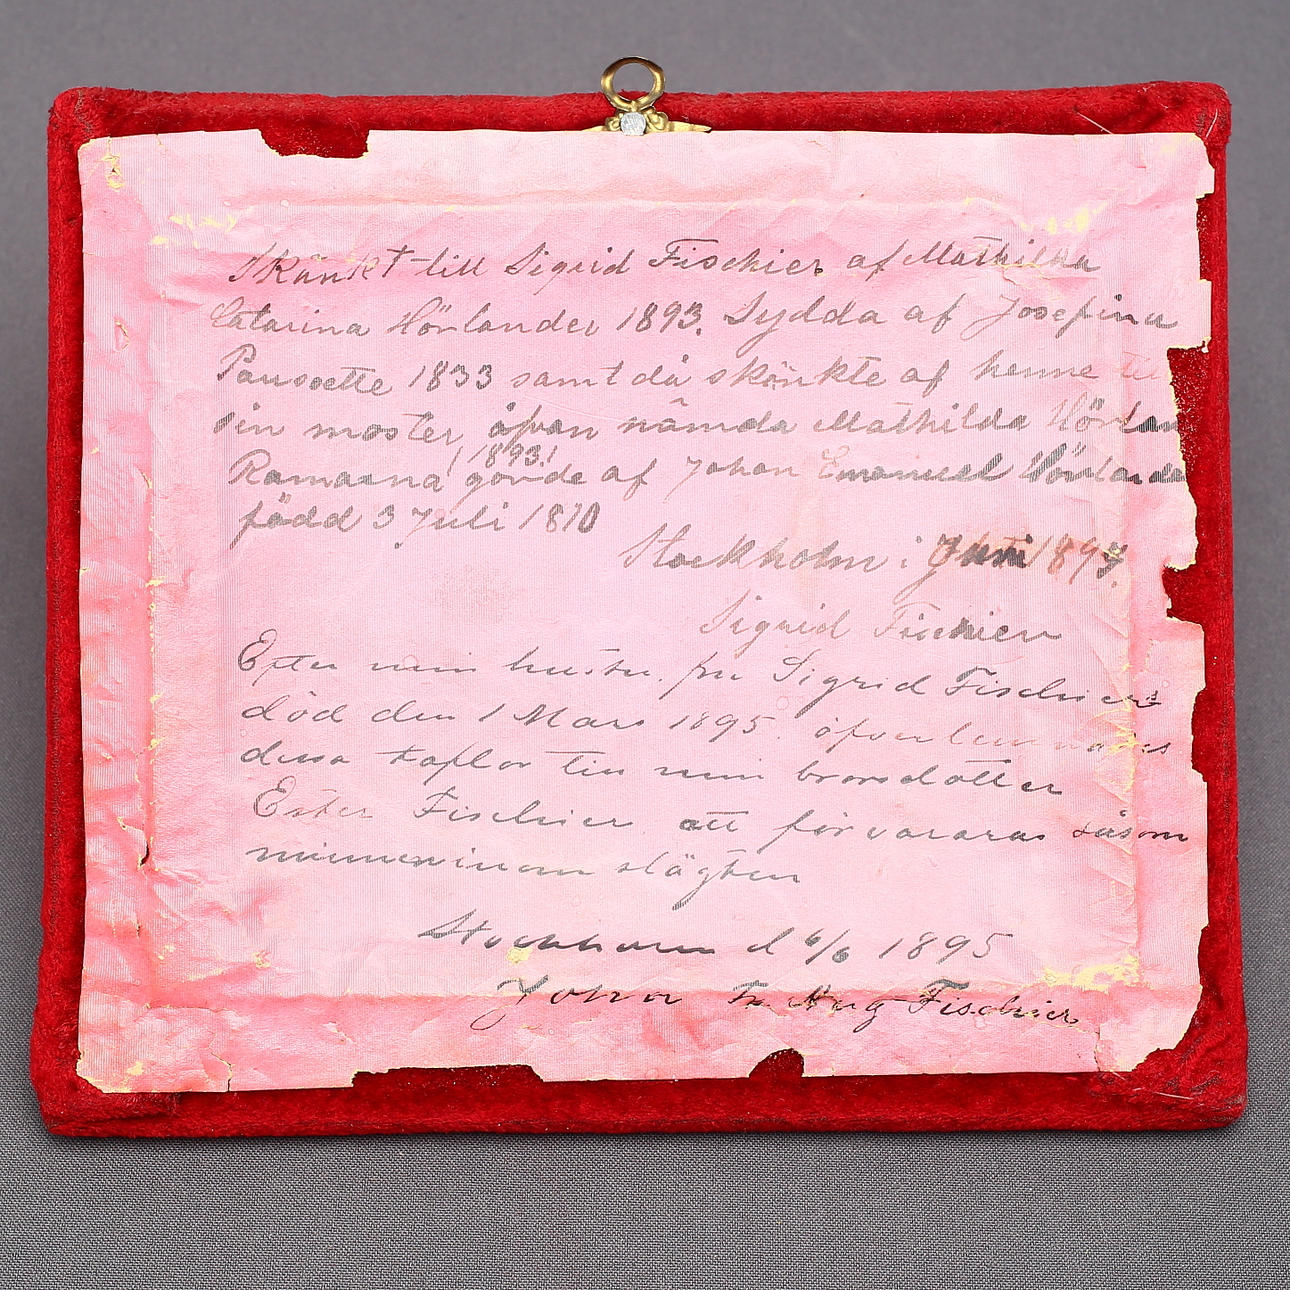 Skänkt till Sigrid Fischier af Mathilda
Catarina Hörlander 1893. Sydda af Josefina
1833 samt då skönkte af henne till
sin moster, åfvan nämda Mathilda Hörlan
(1893!
Ramarna gorde af Johan Emanuel Hörlande
född 3 Juli 1810
Stockholm i 1893.
Sigrid Fischier
Efter min hustru, fru Sigrid Fischiers
död den 1 Mars 1895. öfverlemnades
dessa taflor till min brorsdotter
Ester Fischier att förvararas såsom
minnen inom slägten
Stockholm d 6/6 1895
John Fr. Aug Fischier